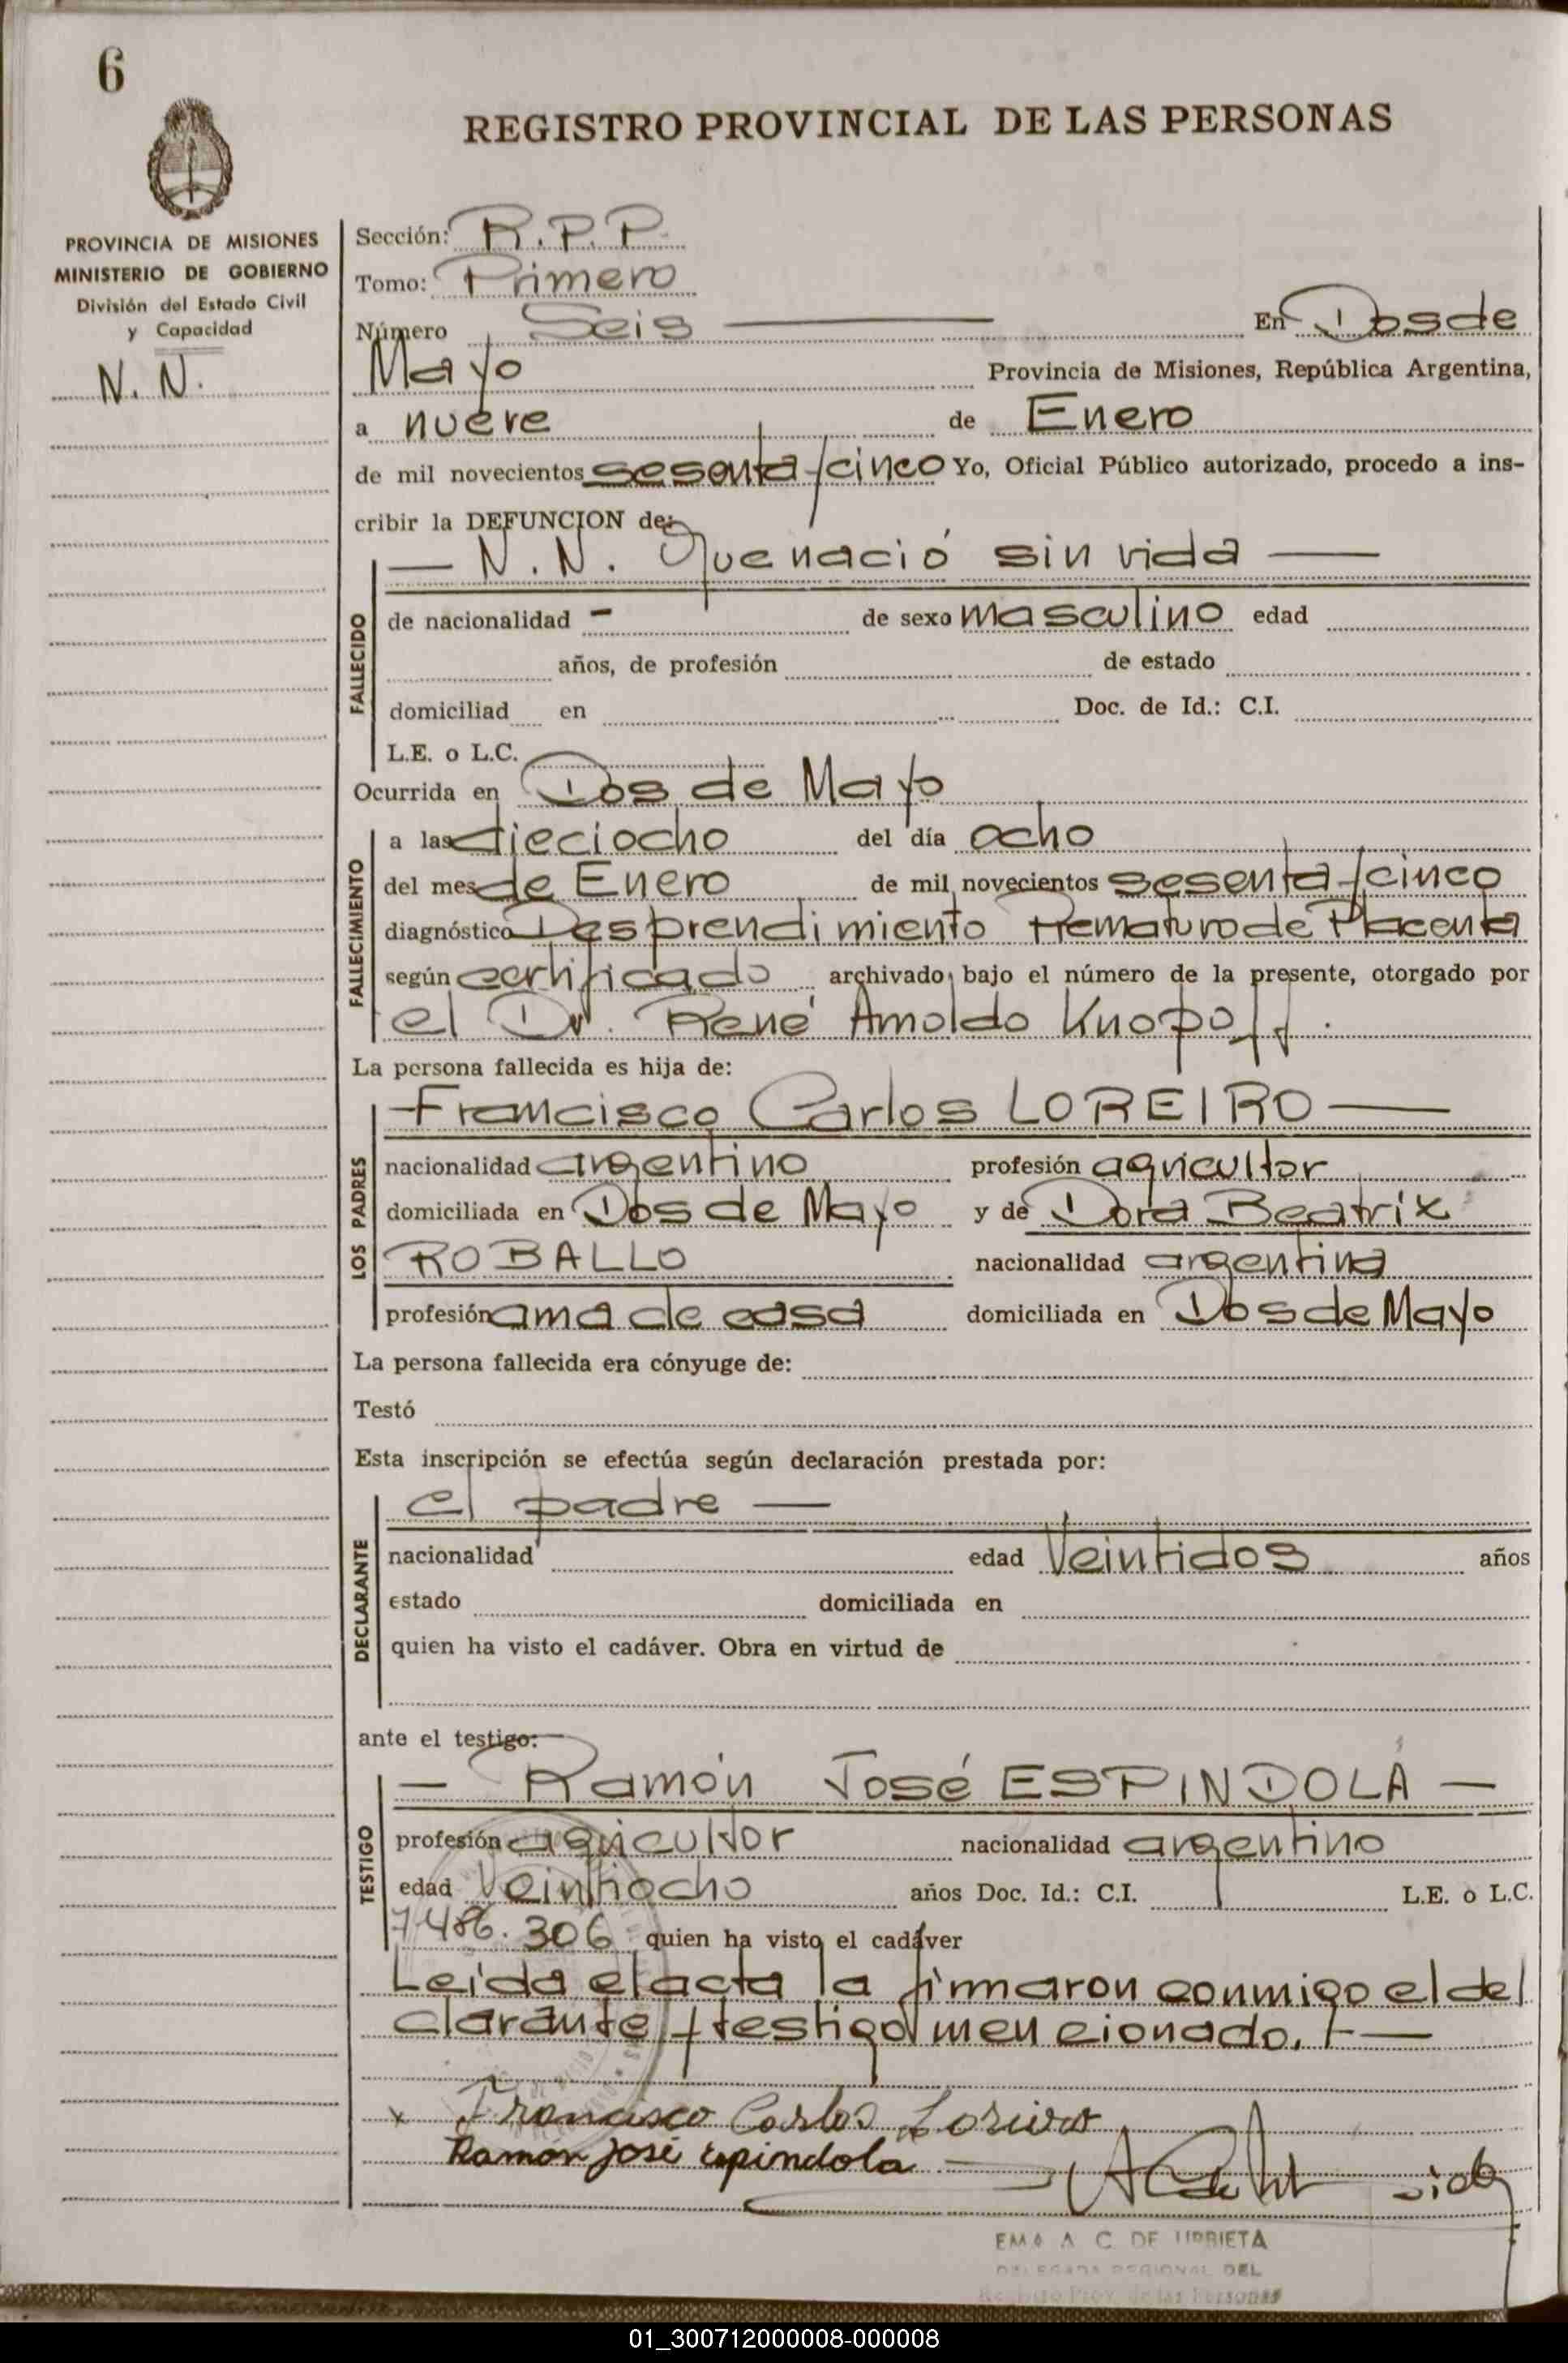 6
REGISTRO PROVINCIAL DE LAS PERSONAS
PROVINCIA DE MISIONES
MINISTERIO DE GOBIERNO
División del Estado Civil
y Capacidad
N. N.
Sección: R. P. P.
Tomo: Primero
Número Seis En Dos de
Mayo Provincia de Misiones, República Argentina,
a nueve de Enero
de mil novecientos sesenta y cinco Yo, Oficial Público autorizado, procedo a ins-
cribir la DEFUNCION de:
— N. N. Que nació sin vida —
FALLECIDO
de nacionalidad - de sexo masculino edad
años, de profesión de estado
domiciliad en Doc. de Id.: C.I.
L.E. o L.C.
Ocurrida en Dos de Mayo
FALLECIMIENTO
a las dieciocho del día ocho
del mes de Enero de mil novecientos sesenta y cinco
diagnóstico Desprendimiento Prematuro de Placenta
según certificado archivado bajo el número de la presente, otorgado por
el Dr. René Arnoldo Knopoff.
La persona fallecida es hija de:
LOS PADRES
Francisco Carlos LOREIRO —
nacionalidad argentino profesión agricultor
domiciliada en Dos de Mayo y de Dora Beatrix
ROBALLO nacionalidad argentina
profesión ama de casa domiciliada en Dos de Mayo
La persona fallecida era cónyuge de:
Testó
Esta inscripción se efectúa según declaración prestada por:
DECLARANTE
el padre —
nacionalidad edad Veintidos años
estado domiciliada en
quien ha visto el cadáver. Obra en virtud de
ante el testigo:
TESTIGO
— Ramón José ESPINDOLA —
profesión agricultor nacionalidad argentino
edad Veintiocho años Doc. Id.: C.I. L.E. o L.C.
7.486.306 quien ha visto el cadáver
Leida el acta la firmaron conmigo el del
clarante y testigo mencionado. —
x Francisco Carlos Loreiro
Ramón José Espindola
EMA A C. DE URRIETA
DELEGADA REGIONAL DEL
Registro Prov. de las Personas
01_300712000008-000008